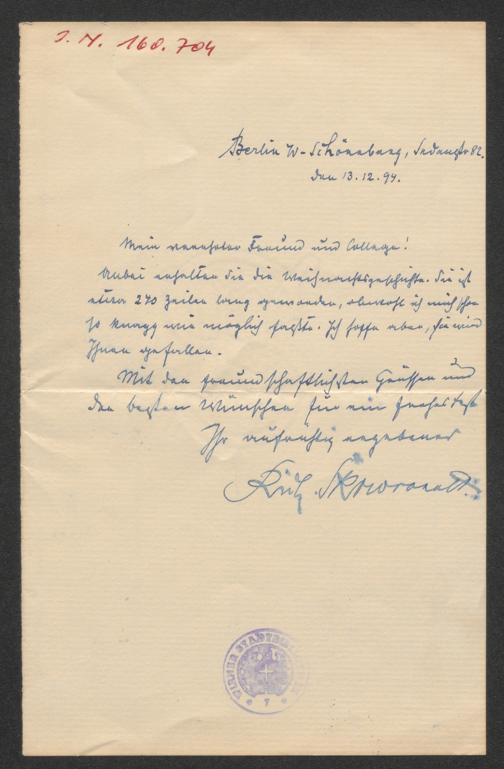 J. N. 160.704
Berlin W-Schöneberg, Sedanstr 82.
den 13.12.94.
Mein verehrter Freund und College!
Anbei erhalten Sie die Weihnachtsgeschichte. Sie ist
etwa 270 Zeilen lang geworden, obwohl ich mich schon
so knapp wie möglich faßte. Ich hoffe aber, sie wird
Ihnen gefallen.
Mit den freundschaftlichsten Grüssen und
den besten Wünschen für ein frohes Fest
Ihr aufrichtig ergebener
Fritz Skowronnek.
WIENER STADTBIBLIOTHEK